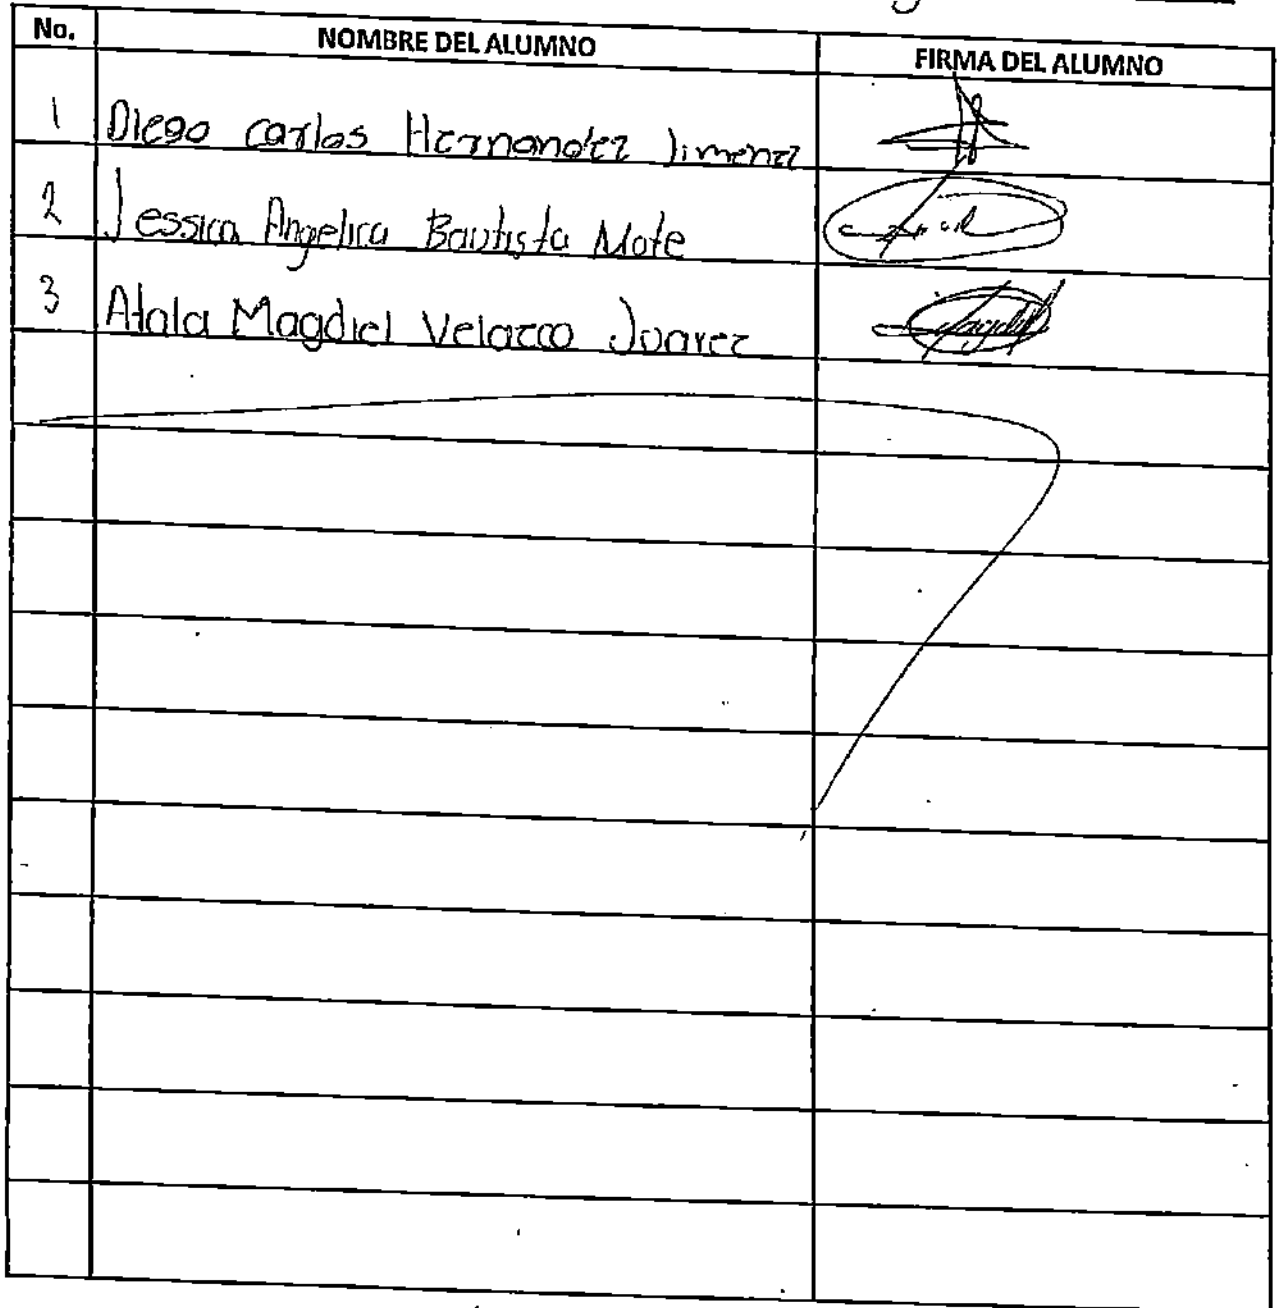 No. NOMBRE DEL ALUMNO FIRMA DEL ALUMNO
1 Diego carlos Hernandez Jimenez
2 Jessica Angelica Bautista Mote
3 Atala Magdiel Velazco Juarez